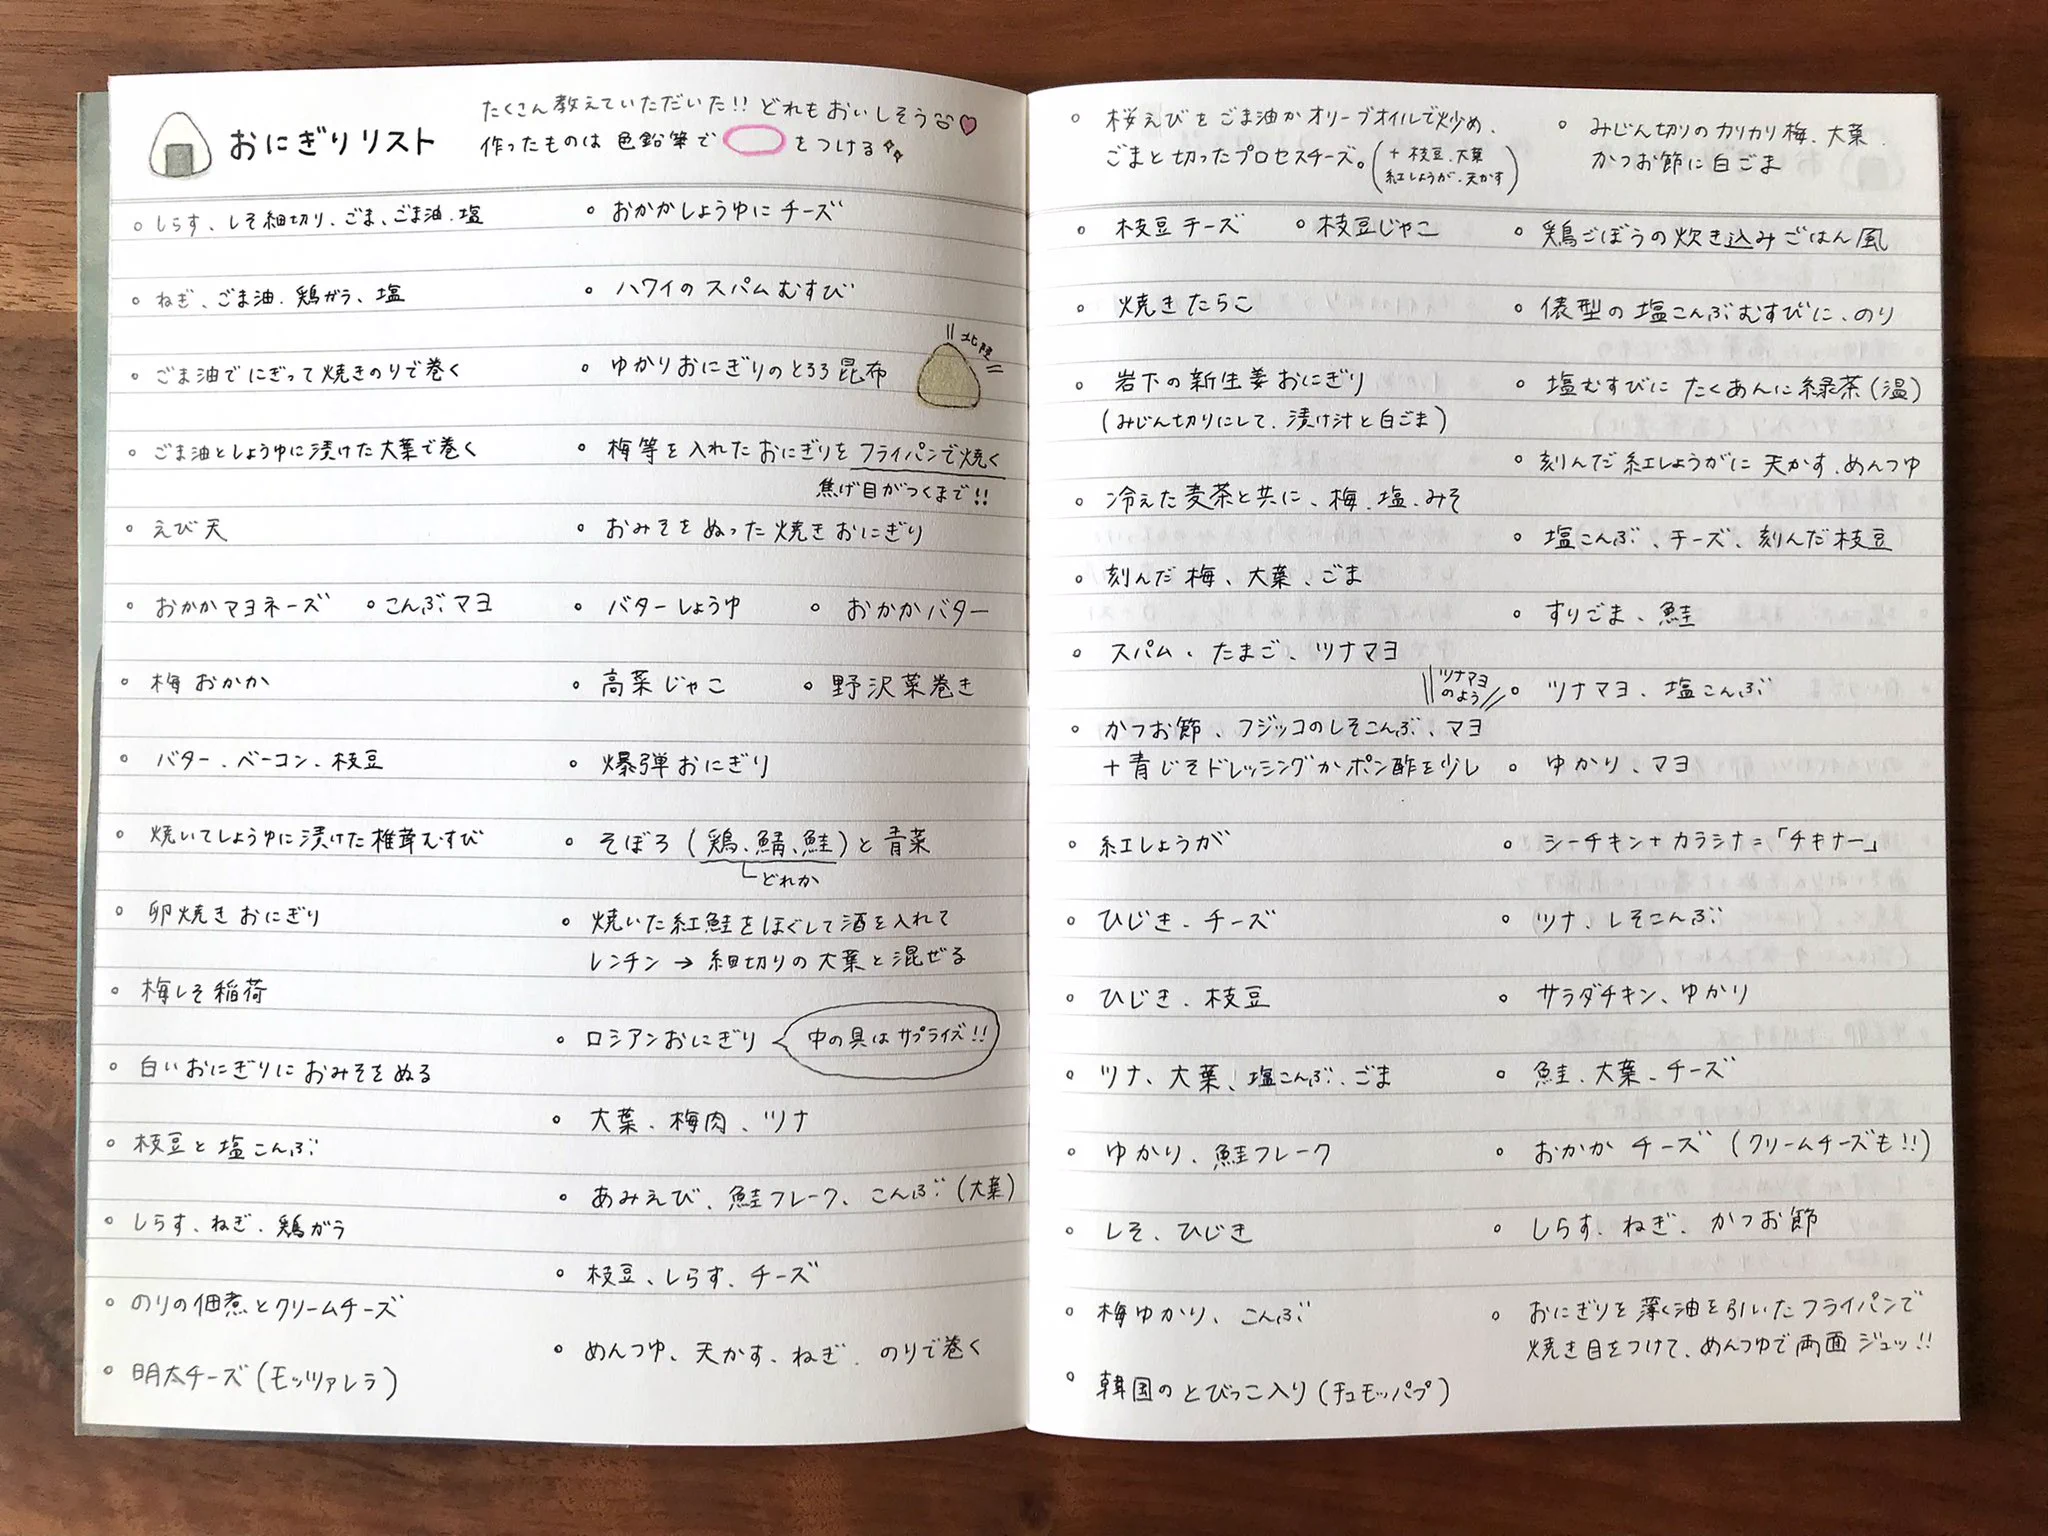 おにぎりリスト
たくさん教えていただいた!! どれもおいしそう
作ったものは 色鉛筆で をつける
しらす、しそ細切り、ごま、ごま油、塩
ねぎ、ごま油、鶏ガラ、塩
ごま油で にぎって 焼きのりで巻く
ごま油としょうゆに漬けた大葉で巻く
えび天
おかかマヨネーズ
こんぶマヨ
梅おかか
バター、ベーコン、枝豆
焼いてしょうゆに漬けた椎茸むすび
卵焼きおにぎり
梅しそ稲荷
白いおにぎりにおみそをぬる
枝豆と塩こんぶ
しらす、ねぎ、鶏ガラ
のりの佃煮とクリームチーズ
明太チーズ(モッツァレラ)
おかかしょうゆにチーズ
ハワイのスパムむすび
ゆかりおにぎりのとろろ昆布
北陸
梅等を入れたおにぎりをフライパンで焼く
焦げ目がつくまで!!
おみそをぬった焼きおにぎり
バターしょうゆ
おかかバター
高菜じゃこ
野沢菜巻き
爆弾おにぎり
そぼろ(鶏、鯖、鮭)と青菜
どれか
焼いた紅鮭をほぐして酒を入れて
レンチン→細切りの大葉と混ぜる
ロシアンおにぎり
中の具はサプライズ!!
大葉、梅肉、ツナ
あみえび、鮭フレーク、こんぶ(大葉)
枝豆、しらす、チーズ
めんつゆ、天かす、ねぎ、のりで巻く
桜えびをごま油かオリーブオイルで炒め、
ごまと切ったプロセスチーズ。
(+枝豆、大葉
紅しょうが、天かす)
枝豆チーズ
枝豆じゃこ
焼きたらこ
岩下の新生姜おにぎり
(みじん切りにして、漬け汁と白ごま)
冷えた麦茶と共に、梅、塩、みそ
刻んだ梅、大葉、ごま
スパム、たまご、ツナマヨ
かつお節、フジッコのしそこんぶ、マヨ
+青じそドレッシングかポン酢を少し
ツナマヨ
のよう
紅しょうが
ひじき、チーズ
ひじき、枝豆
ツナ、大葉、塩こんぶ、ごま
ゆかり、鮭フレーク
しそ、ひじき
梅ゆかり、こんぶ
韓国のとびっこ入り(チュモッパプ)
みじん切りのカリカリ梅、大葉、
かつお節に白ごま
鶏ごぼうの炊き込みごはん風
俵型の塩こんぶむすびに、のり
塩むすびにたくあんに緑茶(温)
刻んだ紅しょうがに天かす、めんつゆ
塩こんぶ、チーズ、刻んだ枝豆
すりごま、鮭
ツナマヨ、塩こんぶ
ゆかり、マヨ
シーチキン+カラシナ=「チキナー」
ツナ、しそこんぶ
サラダチキン、ゆかり
鮭、大葉、チーズ
おかかチーズ(クリームチーズも!!)
しらす、ねぎ、かつお節
おにぎりを薄く油を引いたフライパンで
焼き目をつけて、めんつゆで両面ジュッ!!